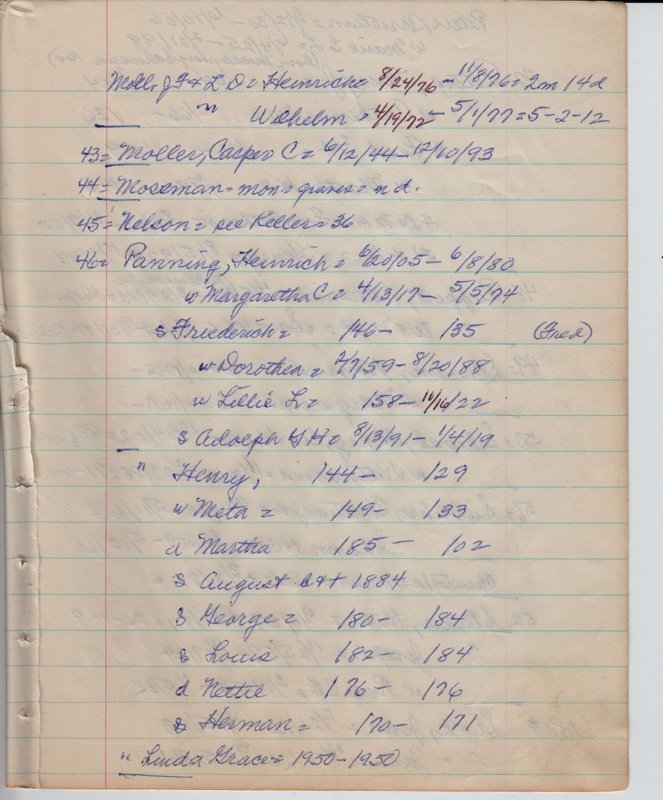 Moller, J F & L D = Heinrich = 8/24/76 - 11/8/76 = 2m 14d
" Wilhelm = 4/19/72 - 5/1/77 = 5-2-12
43 = Moller, Casper C = 6/12/44 - 12/10/93
44 = Moseman = mon = graves = n d.
45 = Nelson = see Keller = 36
46 = Panning, Heinrich = 6/20/05 - 6/8/80
w Margaretha C = 4/13/17 - 5/5/74
s Friederich = '46 - '35 (Fred)
w Dorothea = 2/7/59 - 8/20/88
w Lillie L = '58 - 11/16/22
s Adolph G H = 8/13/91 - 1/4/19
" Henry, '44 - '29
w Meta = '49 - '33
d Martha '85 - '02
s August b & + 1884
s George = '80 - '84
s Louis '82 - '84
d Nettie '76 - '76
s Herman = '70 - '71
" Linda Grace = 1950 - 1950